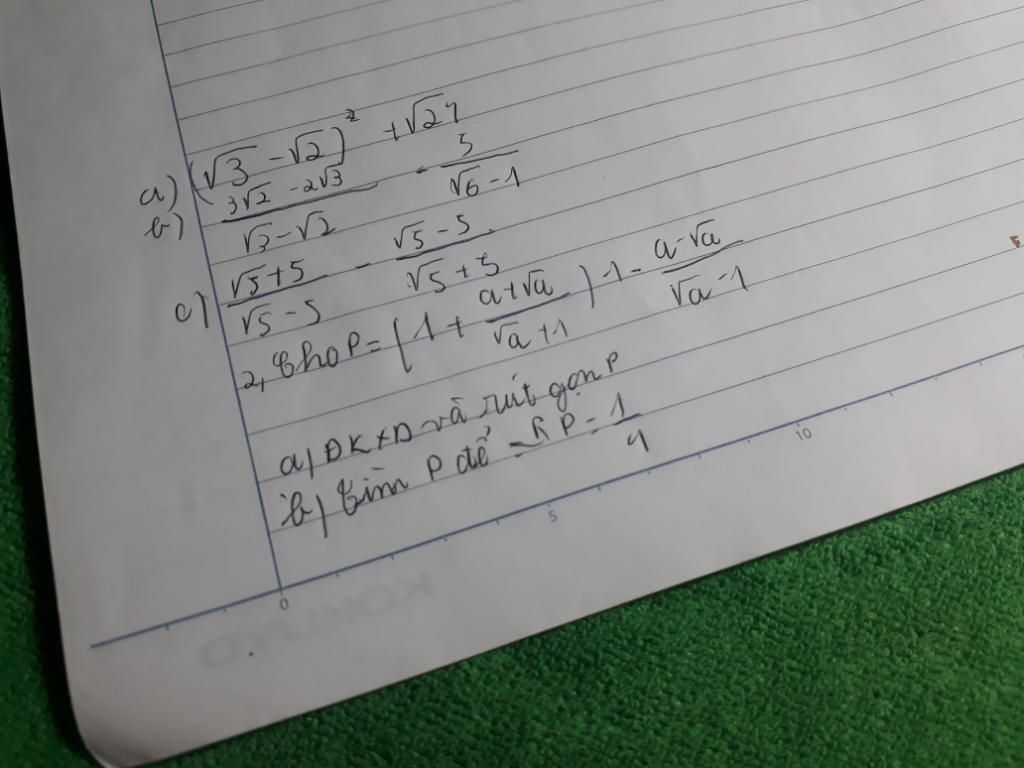 a) (√3 - √2)² + √27
b) (3√2 - 2√3)/(√3 - √2) - 5/(√6 - 1)
c) (√5 + 5)/(√5 - 5) - (√5 - 5)/(√5 + 5)
2, Cho P = (1 + (a + √a)/(√a + 1)) 1 - (a - √a)/(√a - 1)
a) ĐKXD và rút gọn P
b) tìm P để P = 1/4
0 5 10